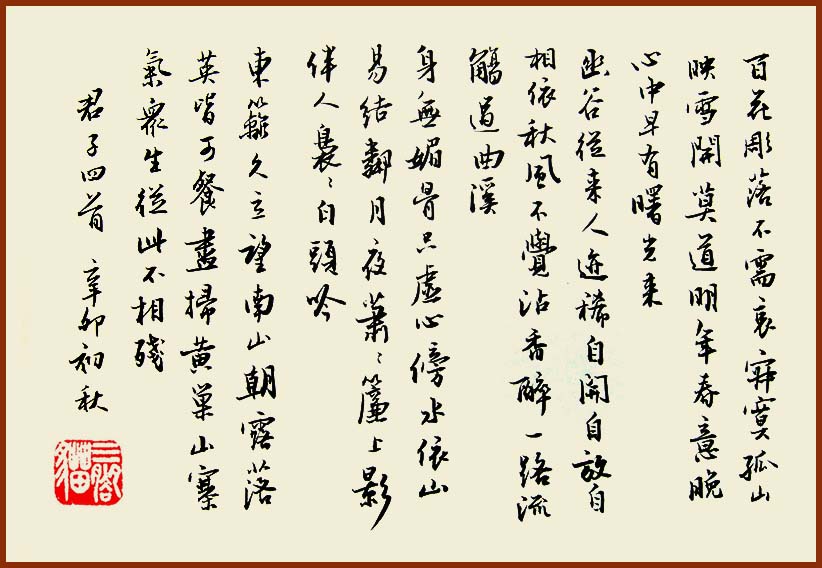 百花彫落不需哀寂寞孤山
映雪開莫道明年春意晚
心中早有曙光来
幽谷從来人迹稀自開自放自
相依秋風不覺沾香醉一路流
觴過曲溪
身無媚骨只虚心傍水依山
易結鄰月夜蕭〻簾上影
伴人裊〻白頭吟
東籬久立望南山朝露落
英皆可餐盡掃黄巢山寨
氣衆生從此不相殘
君子四首 辛卯初秋